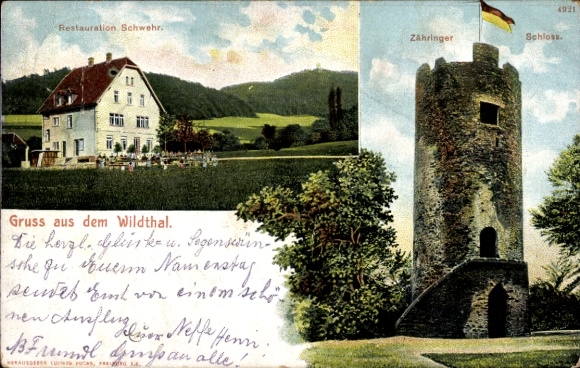 4921
Restauration Schwehr.
Zähringer Schloss.
Gruss aus dem Wildthal.
Die herzl. Glück- u. Segenswün-
sche zu Euerm Namenstag
sendet Euch von einem schö-
nen Ausflug
Euer Neffe Henri.
NB Freundl. Gruss an alle!
HERAUSGEBER LUDWIG FUCHS, FREIBURG I.B.